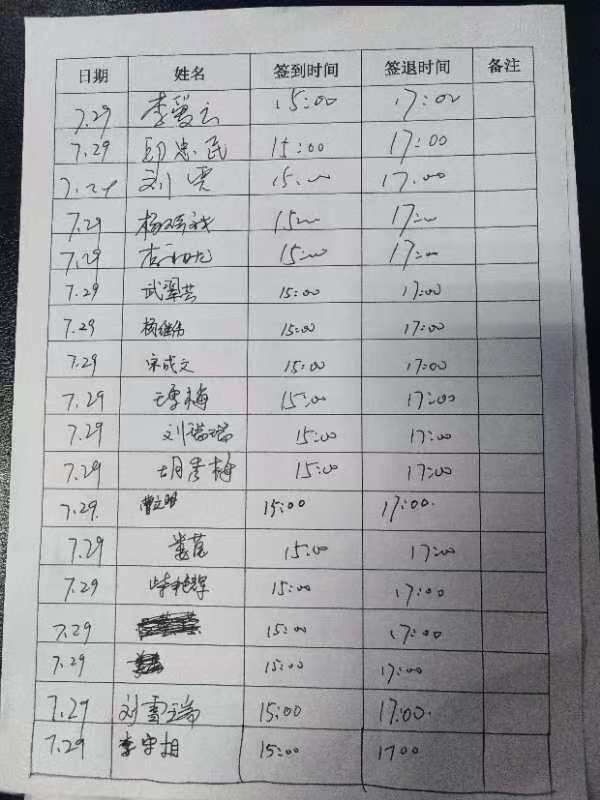 日期 姓名 签到时间 签退时间 备注
7.29 李 云 15:00 17:00
7.29 印忠民 15:00 17:00
刘 17:00
7.29 杨 15:00 17:00
7.29 15:00 17:00
7.29 武翠芸 15:00 17:00
7.29 杨继伟 15:00 17:00
7.29 宋成文 15:00 17:00
7.29 梅 15:00 17:00
7.29 刘瑞瑞 15:00 17:00
7.29 胡彦梅 15:00 17:00
7.29. 曹立明 15:00 17:00.
7.29 15:00 17:00
7.29 15:00 17:00
7.29 15:00 17:00
7.29 15:00 17:00
7.29 刘雪瑞 15:00 17:00.
7.29 李宇相 15:00 1700